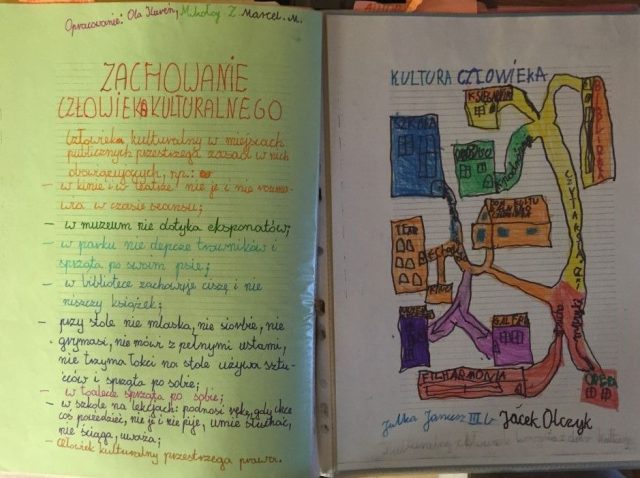 Opracowanie: Ola Mikołaj Z. Marcel. M.
ZACHOWANIE
CZŁOWIEKA KULTURALNEGO
Człowiek kulturalny w miejscach
publicznych przestrzega zasad w nich
obowiązujących, np.:
- w kinie i w teatrze nie je i nie rozma-
wia w czasie seansu;
- w muzeum nie dotyka eksponatów;
- w parku nie depcze trawników i
sprząta po swoim psie;
- w bibliotece zachowuje ciszę i nie
niszczy książek;
- przy stole nie mlaska, nie siorbie, nie
grymasi, nie mówi z pełnymi ustami,
nie trzyma łokci na stole używa sztu-
ćców i sprząta po sobie;
- w toalecie sprząta po sobie;
- w szkole na lekcjach: podnosi rękę, gdy chce
coś powiedzieć, nie je i nie pije, umie słuchać,
nie ściąga, uważa;
- Człowiek kulturalny przestrzega prawa.
KULTURA CZŁOWIEKA
KSIĘGARNIA
BIBLIOTEKA
SZKOŁA
CZYTAJĄCA
TEATR
KINO
GALERIA
FILHARMONIA
OPERA
Julka Janusz III b Jacek Olczyk